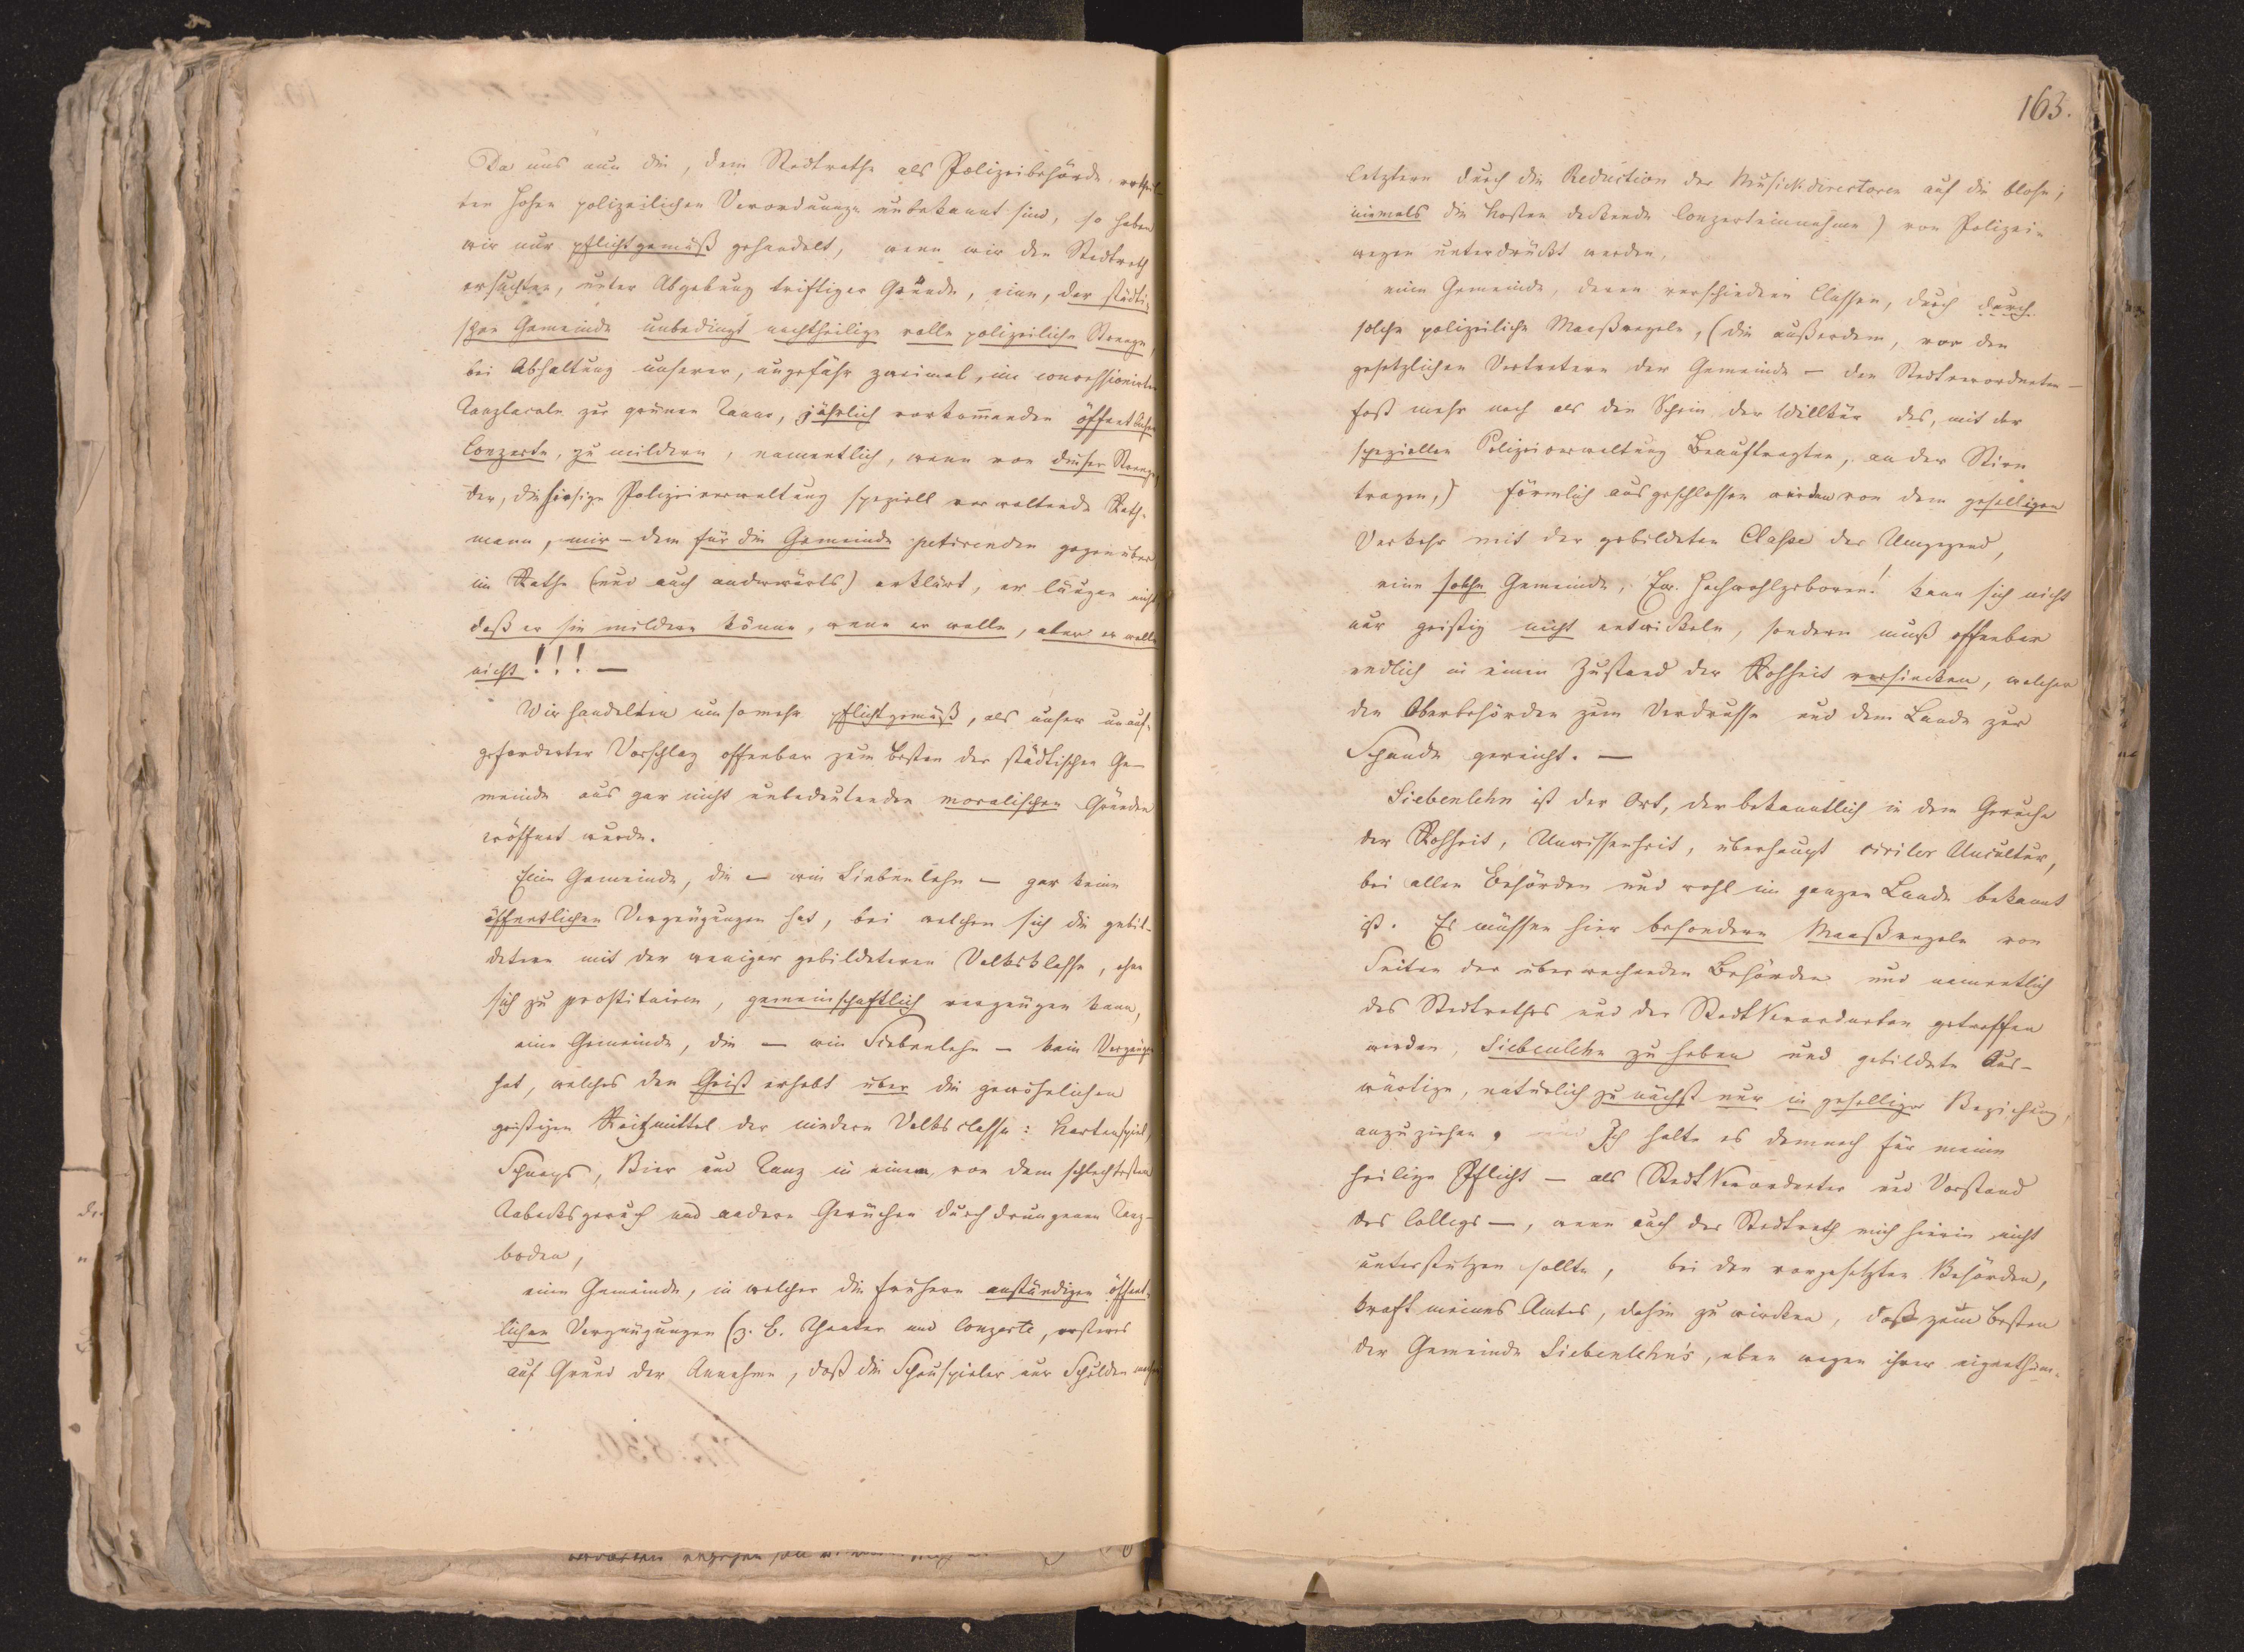 Da uns nun die, dem Stadtrathe als Polizeibehörde, ertheil-
ten hohen polizeilichen Verordnungen unbekannt sind, so haben
wir nur pflichtgemäß gehandelt, wenn wir den Stadtrath
ersuchten, unter Abgebung triftiger Gründe, eine, der städti-
schen Gemeinde unbedingt nachtheilige volle polizeiliche Strenge,
bei Abhaltung unserer, ungefähr zweimal, im concessionirten
Tanzlocale zur grünen Tanne, jährlich vorkommenden öffentlichen
Conzerte, zu mildern, namentlich, wenn von dieser Strenge,
der, die hiesige Polizeiverwaltung speziell verwaltende Rath-
mann, mir – dem für die Gemeinde petirenden gegenüber
im Rathe (und auch anderwärts) erklärt, er läugne nicht
daß er sie mildern könne, wenn er wolle, aber er wolle
nicht!!! —
Wir handelten um so mehr pflichtgemäß, als unser unauf-
geforderter Vorschlag offenbar zum Besten der städtischen Ge-
meinde aus gar nicht unbedeutenden moralischen Gründen
eröffnet wurde.
Eine Gemeinde, die – wie Siebenlehn – gar keine
öffentlichen Vergnügungen hat, bei welchen sich die gebil-
detern mit der weniger gebildeteren Volksklasse, ohne
sich zu prostituiren, gemeinschaftlich vergnügen kann,
eine Gemeinde, die — wie Siebenlehn — kein Vergnügen
hat, welches den Geist erhebt über die gewöhnlichen
geistigen Reitzmittel der niedern Volksclasse: Kartenspiel,
Schnaps, Bier und Tanz in einem, von dem schlechtesten
Tabacksgeruch und andern Gerüchen durchdrungenen Tanz-
boden,
eine Gemeinde, in welcher die frühern anständigen öffent-
lichen Vergnügungen (z. B. Theater und Conzerte, ersteres
auf Grund der Annahme, daß die Schauspieler nur Schulden machen
163.
letztere durch die Reduction der Musickdirectoren auf die blose,
niemals die Kosten deckende Conzerteinnahme) von Polizei-
wegen unterdrückt werden,
eine Gemeinde, deren verschiedene Classen, durch durch
solche polizeiliche Maaßregeln, (die außerdem, vor den
gesetzlichen Vertretern der Gemeinde – den Stadtverordneten –
fast mehr noch als den Schein der Willkür des, mit der
speziellen Polizeiverwaltung Beauftragten, an der Stirn
tragen,) förmlich ausgeschlossen würden von dem geselligen
Verkehr mit der gebildeten Classe der Umgegend,
eine solche Gemeinde, Ew. Hochwohlgeboren! kann sich nicht
nur geistig nicht entwickeln, sondern muß offenbar
endlich in einen Zustand der Rohheit versincken, welcher
den Oberbehörden zum Verdrusse und dem Lande zur
Schande gereicht. —
Siebenlehn ist der Ort, der bekanntlich in dem Geruche
der Rohheit, Unwissenheit, überhaupt civiler Uncultur,
bei allen Behörden und wohl im ganzen Lande bekannt
ist. Es müssen hier besondere Maaßregeln von
Seiten der überwachenden Behörden und namentlich
des Stadtrathes und der StadtVerordneten getroffen
werden, Siebenlehn zu heben und gebildete Aus-
wärtige, natürlich zunächst nur in geselliger Beziehung,
anzuziehen. Ich halte es demnach für meine
heilige Pflicht – als StadtVerordneter und Vorstand
des Collegs –, wenn auch der Stadtrath mich hierin nicht
unterstützen sollte, bei den vorgesetzten Behörden,
kraft meines Amtes, dahin zu wircken, daß zum Besten
der Gemeinde Siebenlehn's, eben wegen ihrer eigenthüm-